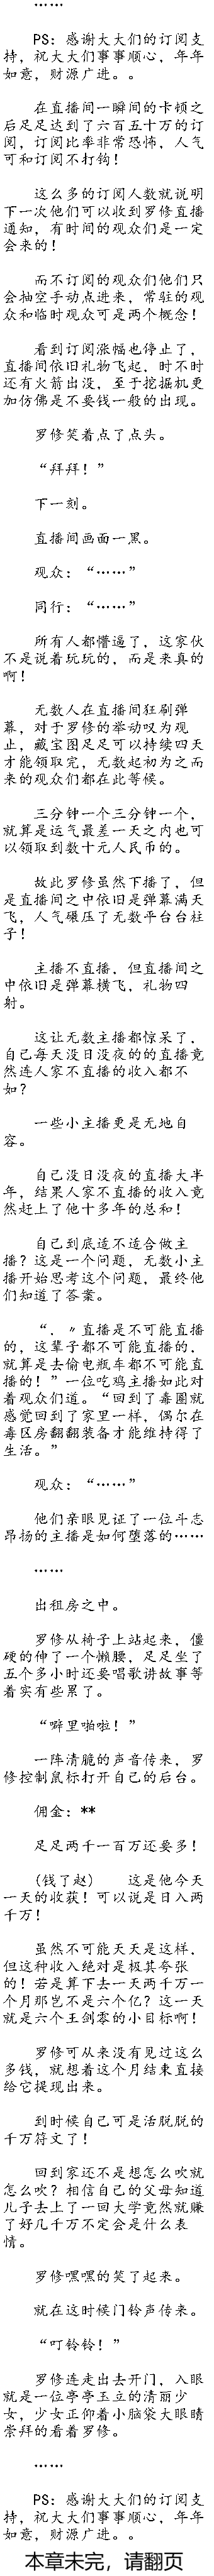 ……
PS：感谢大大们的订阅支
持，祝大大们事事顺心，年年
如意，财源广进。。
在直播间一瞬间的卡顿之
后足足达到了六百五十万的订
阅，订阅比率非常恐怖，人气
可和订阅不打钩！
这么多的订阅人数就说明
下一次他们可以收到罗修直播
通知，有时间的观众们是一定
会来的！
而不订阅的观众们他们只
会抽空手动点进来，常驻的观
众和临时观众可是两个概念！
看到订阅涨幅也停止了，
直播间依旧礼物飞起，时不时
还有火箭出没，至于挖掘机更
加仿佛是不要钱一般的出现。
罗修笑着点了点头。
“拜拜！”
下一刻。
直播间画面一黑。
观众：“……”
同行：“……”
所有人都懵逼了，这家伙
不是说着玩玩的，而是来真的
啊！
无数人在直播间狂刷弹
幕，对于罗修的举动叹为观
止，藏宝图足足可以持续四天
才能领取完，无数起初为之而
来的观众们都在此等候。
三分钟一个三分钟一个，
就算是运气最差一天之内也可
以领取到数十元人民币的。
故此罗修虽然下播了，但
是直播间之中依旧是弹幕满天
飞，人气碾压了无数平台台柱
子！
主播不直播，但直播间之
中依旧是弹幕横飞，礼物四
射。
这让无数主播都惊呆了，
自己每天没日没夜的的直播竟
然连人家不直播的收入都不
如？
一些小主播更是无地自
容。
自己没日没夜的直播大半
年，结果人家不直播的收入竟
然赶上了他十多年的总和！
自己到底适不适合做主
播？这是一个问题，无数小主
播开始思考这个问题，最终他
们知道了答案。
“．〃直播是不可能直播
的，这辈子都不可能直播的，
就算是去偷电瓶车都不可能直
播的！”一位吃鸡主播如此对
着观众们道。“回到了毒圈就
感觉回到了家里一样，偶尔在
毒区房翻翻装备才能维持得了
生活。”
观众：“……”
他们亲眼见证了一位斗志
昂扬的主播是如何堕落的……
……
出租房之中。
罗修从椅子上站起来，僵
硬的伸了一个懒腰，足足坐了
五个多小时还要唱歌讲故事等
着实有些累了。
“噼里啪啦！”
一阵清脆的声音传来，罗
修控制鼠标打开自己的后台。
佣金：**
足足两千一百万还要多！
(钱了赵)　　这是他今天
一天的收获！可以说是日入两
千万！
虽然不可能天天是这样，
但这种收入绝对是极其夸张
的！若是算下去一天两千万一
个月那岂不是六个亿？这一天
就是六个王剑零的小目标啊！
罗修可从来没有见过这么
多钱，就想着这个月结束直接
给它提现出来。
到时候自己可是活脱脱的
千万符文了！
回到家还不是想怎么吹就
怎么吹？相信自己的父母知道
儿子去上了一回大学竟然就赚
了好几千万不定会是什么表
情。
罗修嘿嘿的笑了起来。
就在这时候门铃声传来。
“叮铃铃！”
罗修连走出去开门，入眼
就是一位亭亭玉立的清丽少
女，少女正仰着小脑袋大眼睛
崇拜的看着罗修。
……
PS：感谢大大们的订阅支
持，祝大大们事事顺心，年年
如意，财源广进。。
本章未完，请翻页